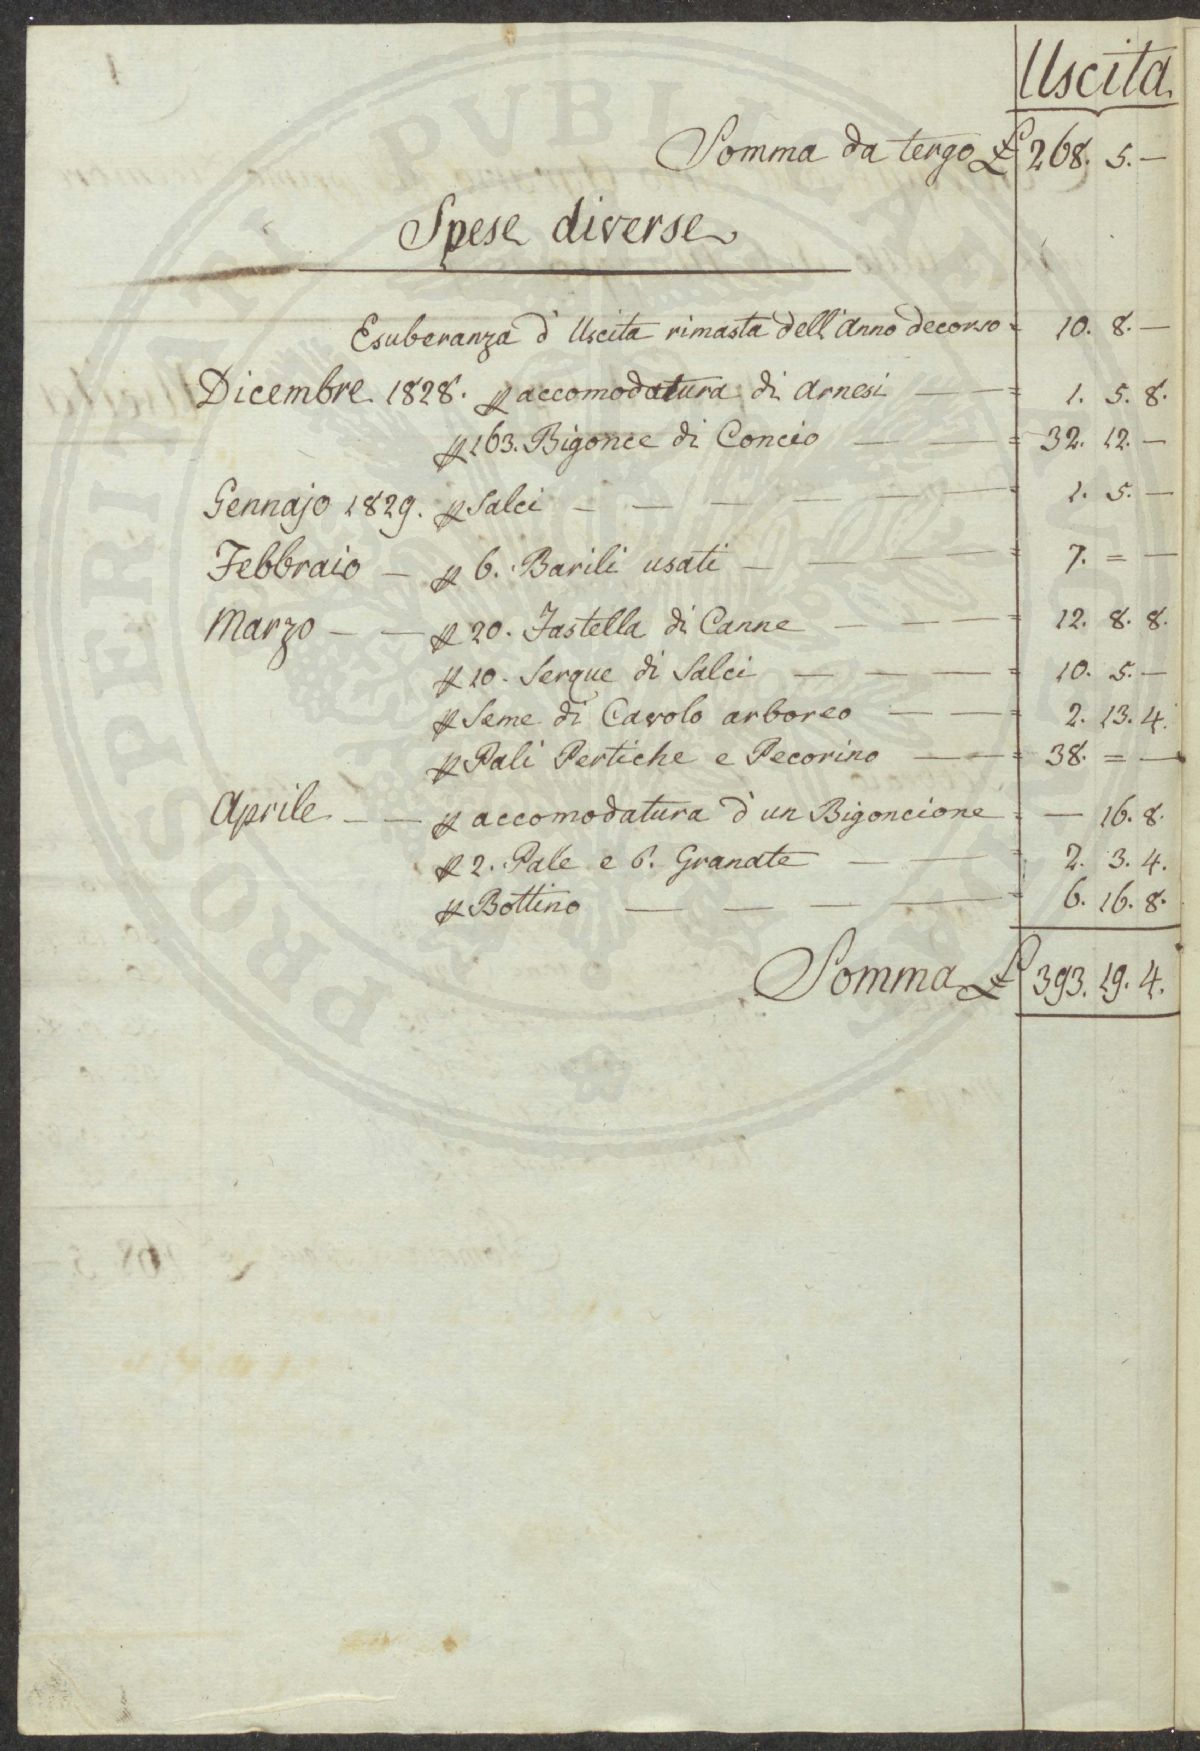 Uscita
Somma da tergo £ 268. 5. —
Spese diverse
Esuberanza d' Uscita rimasta dell'Anno decorso = 10. 8. —
Dicembre 1828. p accomodatura di Arnesi — — = 1. 5. 8.
p 163. Bigonce di Concio — — = 32. 12. —
Gennajo 1829. p Salci — — — — — — = 1. 5. —
Febbraio — p 6. Barili usati — — — = 7. = —
Marzo — — p 20. Fastella di Canne — — — = 12. 8. 8.
p 10. Serque di Salci — — — = 10. 5. —
p Seme di Cavolo arboreo — — = 2. 13. 4.
p Pali Pertiche e Pecorino — — = 38. = —
Aprile — — p accomodatura d'un Bigoncione = — 16. 8.
p 2. Pale e 6. Granate — — = 2. 3. 4.
p Bottino — — — — = 6. 16. 8.
Somma £ 393. 19. 4.
PROSPERITATI PVBLICAE